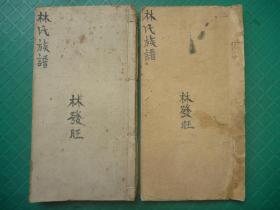 林氏族譜
林發旺
林氏族譜
林發旺